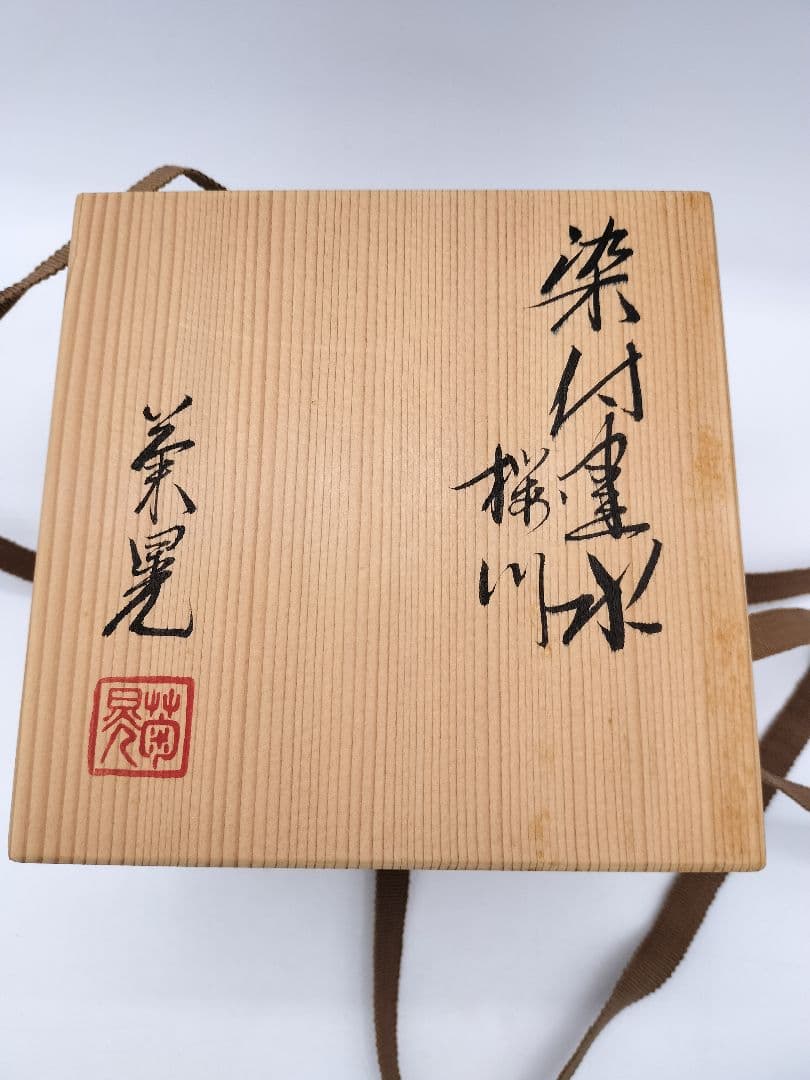 染付建水
桜川
菊晃
菊晃